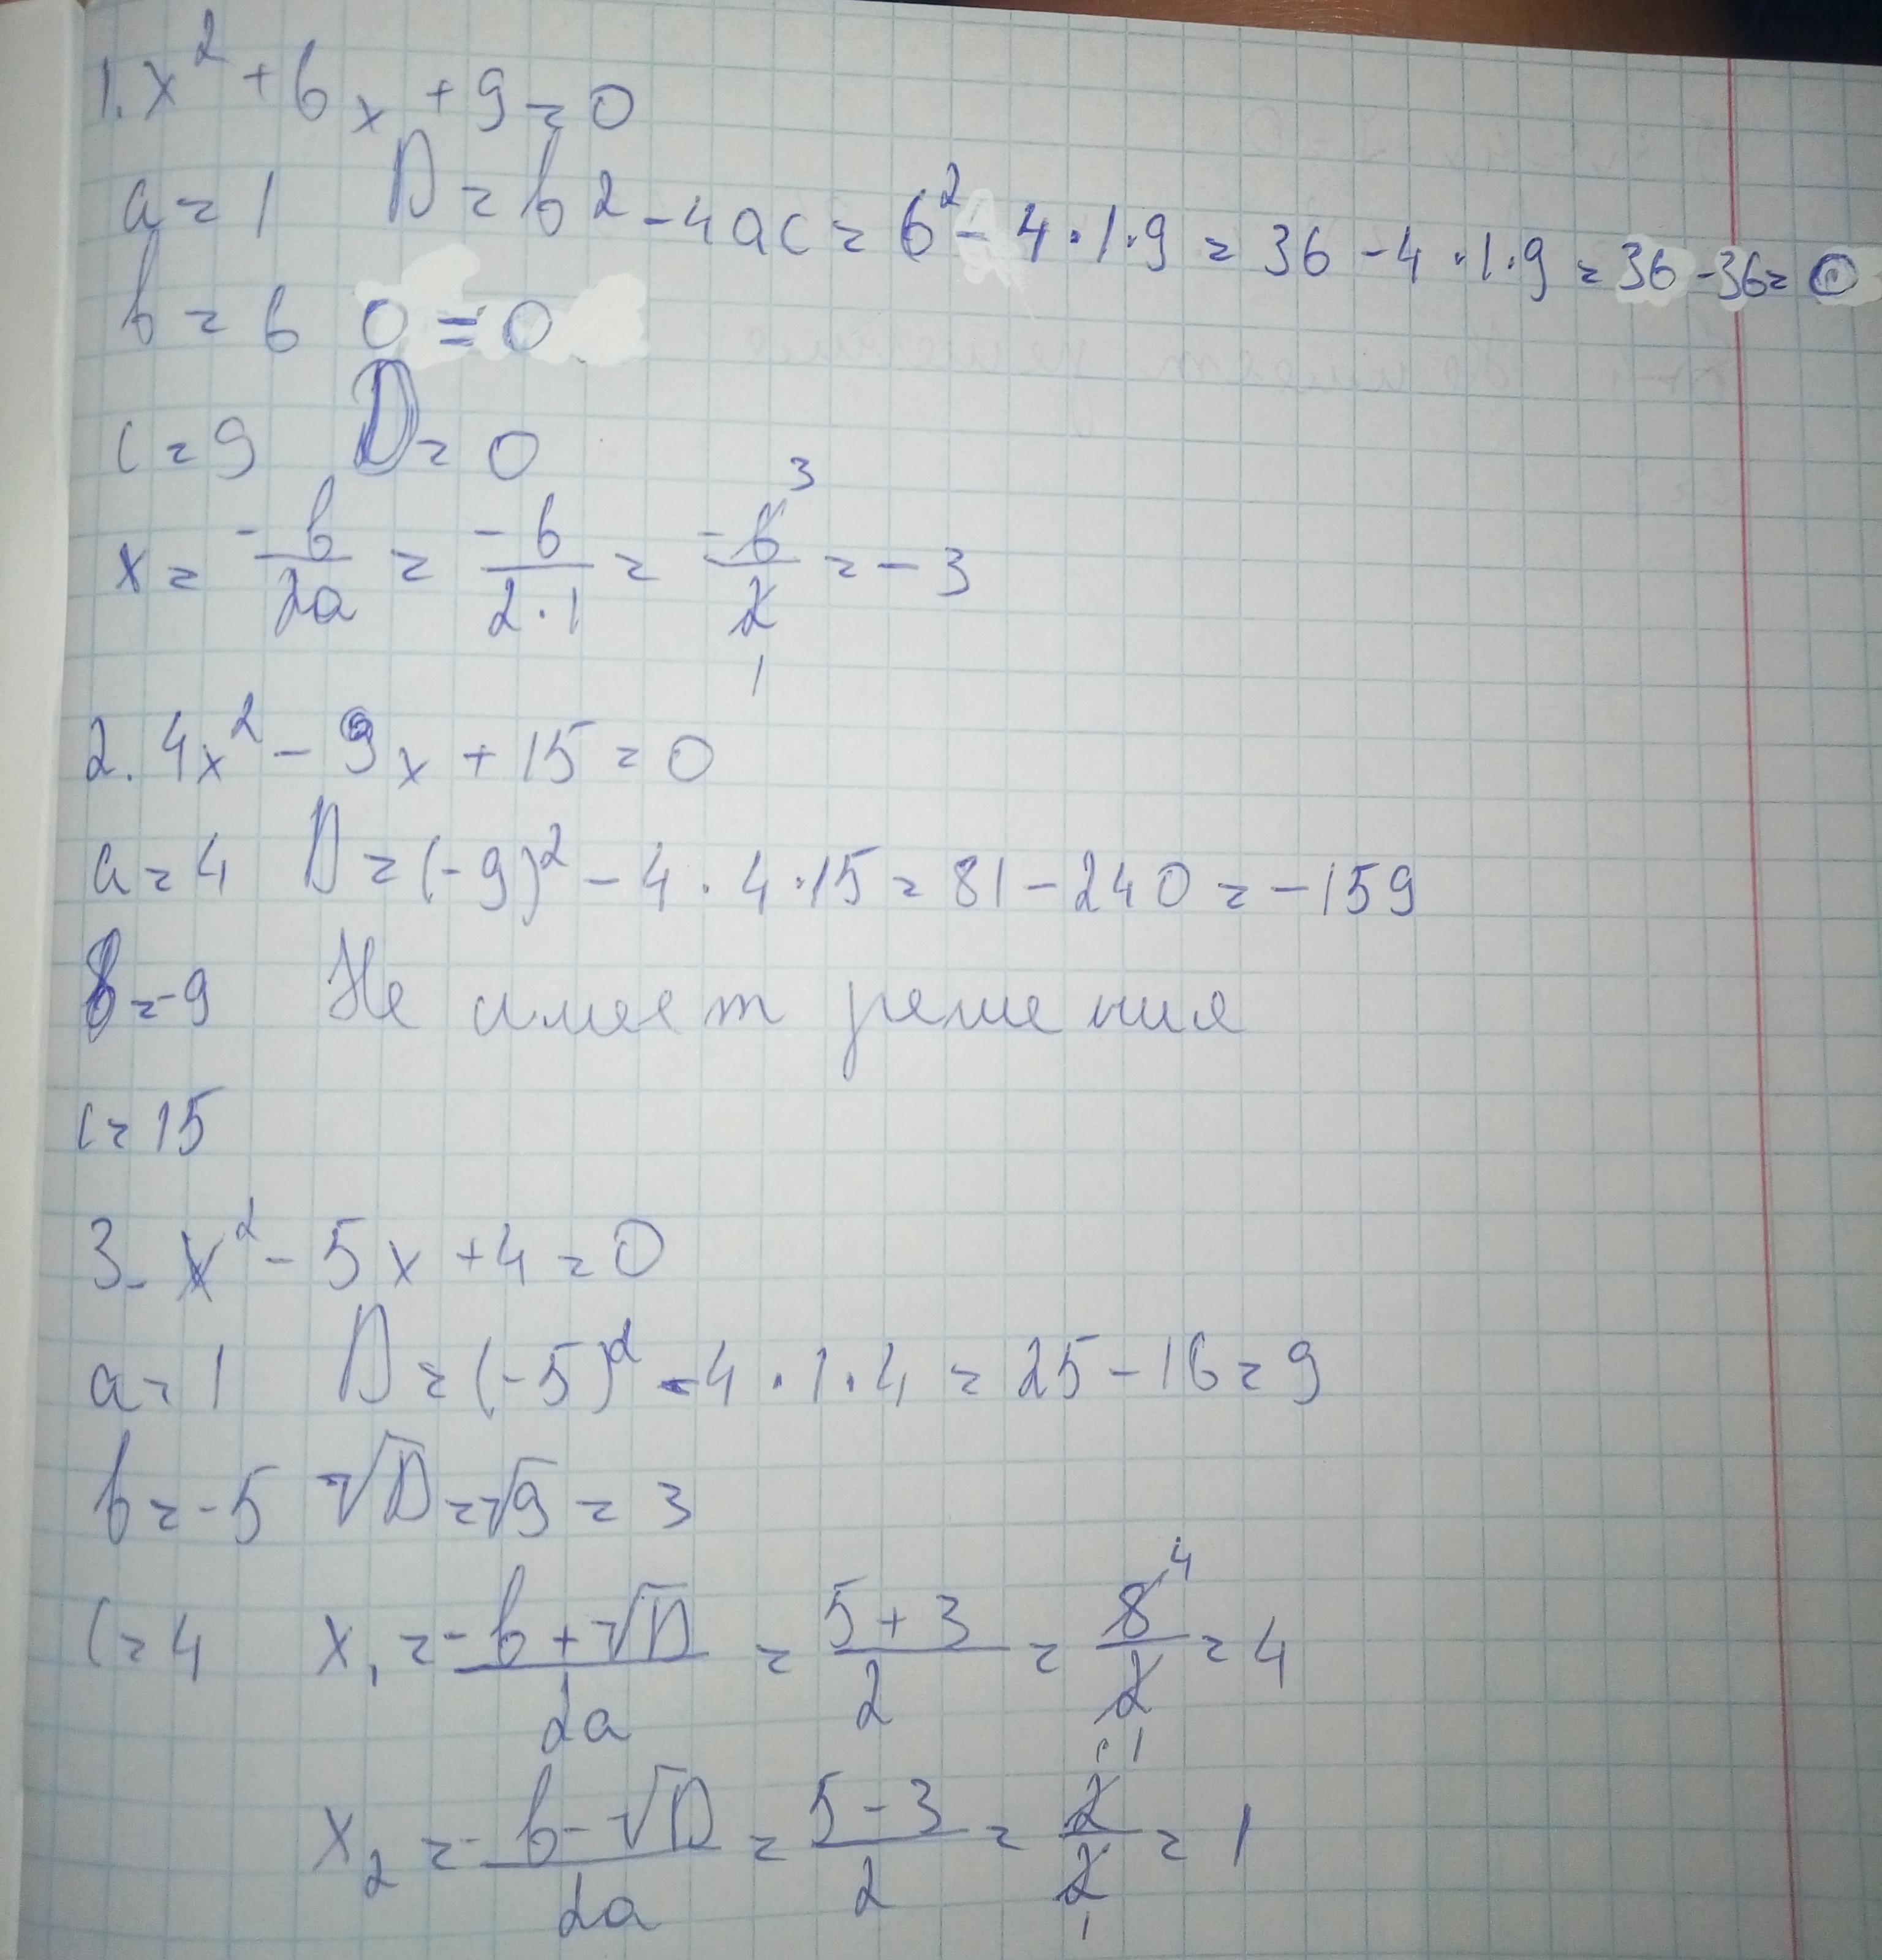 1. x² + 6x + 9 = 0
a = 1 D = b2 - 4ac = 6² - 4·1·9 = 36 - 4·1·9 = 36 - 36 = 0
b = 6 0 = 0
c = 9 D = 0
x = -b/2a = -6/2·1 = -6/2 = -3
3
1
2. 4x² - 9x + 15 = 0
a = 4 D = (-9)² - 4·4·15 = 81 - 240 = -159
b = -9 Не имеет решения
c = 15
3. x² - 5x + 4 = 0
a = 1 D = (-5)² - 4·1·4 = 25 - 16 = 9
b = -5 √D = √9 = 3
c = 4 x₁ = -b + √D/2a = 5 + 3/2 = 8/2 = 4
4
1
x₂ = -b - √D/2a = 5 - 3/2 = 2/2 = 1
1
1